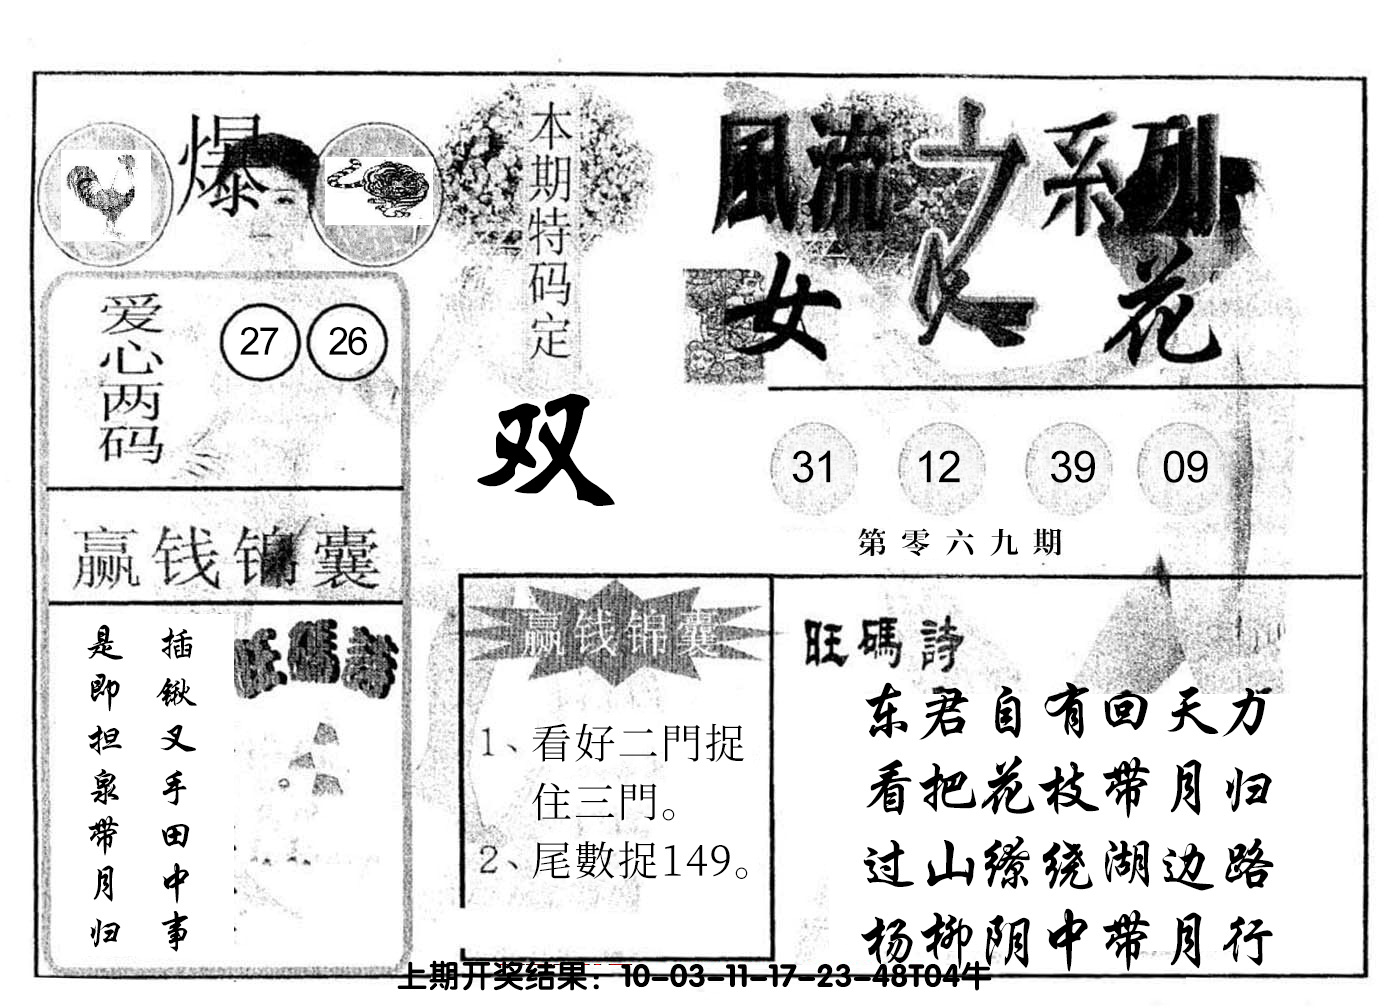 爆
本期特码定
双
風流之系列
女人花
爱心两码
27 26
31 12 39 09
第零六九期
赢钱锦囊
插锹叉手田中事
是即担泉带月归
旺碼詩
赢钱锦囊
1、看好二門捉
住三門。
2、尾數捉149。
旺碼詩
东君自有回天力
看把花枝带月归
过山缭绕湖边路
杨柳阴中带月行
上期开奖结果：10-03-11-17-23-48T04牛